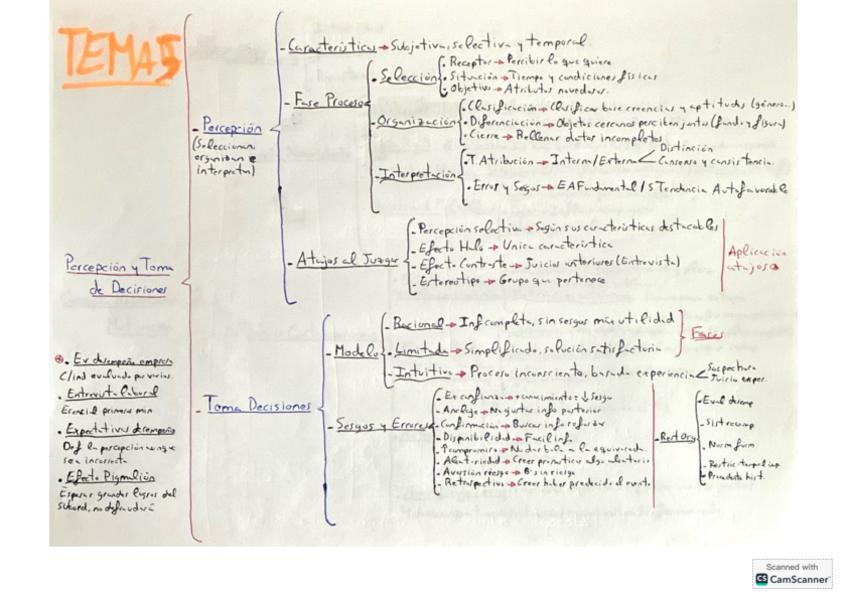 TEMA 5
- Características → Subjetiva, selectiva y temporal.
- Percepción
(Seleccionan,
organizan e
interpretan)
- Fase Proceso
- Selección
· Receptor → Percibir lo que quiere
· Situación → Tiempo y condiciones físicas
· Objetivo → Atributos novedosos.
- Organización
· Clasificación → Clasificar base creencias y aptitudes (género...)
· Diferenciación → Objetos cercanos perciben juntos (fondo y figura)
· Cierre → Rellenar datos incompletos
- Interpretación
· T. Atribución → Interna/Externa
Distinción
Consenso y consistencia.
· Error y Sesgos → EAFundamental / S Tendencia Autofavorable
- Atajos al Juzgar
- Percepción selectiva → Según sus características destacables
- Efecto Halo → Unica característica
- Efecto Contraste → Juicios anteriores (Entrevista)
- Estereotipo → Grupo que pertenece
Aplicación
atajos
Percepción y Toma
de Decisiones
· Ev desempeño empresa
evaluado por varios.
· Entrevista laboral
Esencial primeros min
· Expectativas desempeño
Def la percepción aunque
sea incorrecta
· Efecto Pigmalión
Esperar grandes logros del
subord, no defraudará
- Toma Decisiones
- Modelo
- Racional → Inf completa, sin sesgos más utilidad
- Limitada → Simplificado, solución satisfactoria
Fases
- Intuitivo → Proceso inconsciente, basado experiencia
Sospechar
Juicio exper.
- Sesgos y Errores
- Ex confianza → + conocimiento = ↓ Sesgo
- Anclaje → No ajustar info posterior
- Confirmación → Buscar info
- Disponibilidad → Facil info
- ↑ compromiso → No dar bola a lo equivocado.
- Aleatoriedad → Creer pronostica algo aleatorio
- Aversión riesgo → riesgo
- Retrospectiva → Creer haber predecido el event.
- Rest Org
- Eval desemp
- Sist recomp
- Norm form
- Restric temporal
- Precedente hist.
Scanned with
CS CamScanner